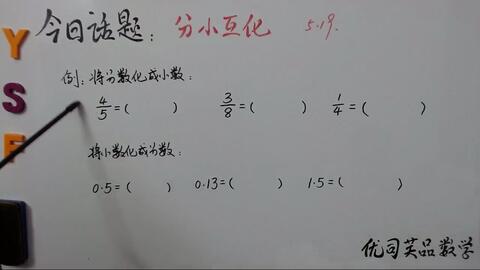 今日话题：分小互化 5.19.
例：将分数化成小数：
4/5=( ) 3/8=( ) 1/4=( )
将小数化成分数：
0.5=( ) 0.13=( ) 1.5=( )
优司芙品数学
Y
S
F